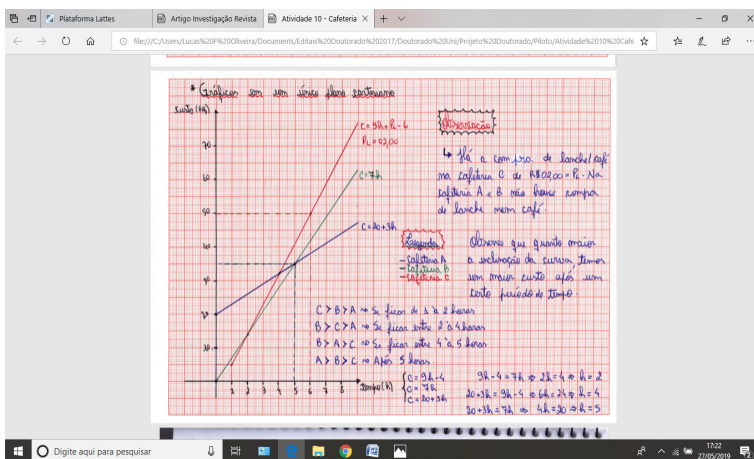 Plataforma Lattes
Artigo Investigação Revista
Atividade 10 - Cafeteria
file:///C:/Users/Lucas%20F%20Oliveira/Documents/Editais%20Doutorado%202017/Doutorado%20Uni/Projeto%20Doutorado/Piloto/Atividade%2010%20Cafe
* Gráficos em um único plano cartesiano
Custo (R$)
C = 9h + PL - 6
PL = 02,00
C = 7h
C = 20 + 3h
70
60
50
40
30
20
10
1 2 3 4 5 6 7 8
Tempo (h)
Observação
↳ Há a compra de lanche/café
na cafeteria C de R$02,00 = PL. Na
cafeteria A e B não houve compra
de lanche nem café.
Legenda
- Cafeteria A
- Cafeteria B
- Cafeteria C
Observe que quanto maior
a inclinação da curva, temos
um maior custo após um
certo período de tempo.
C > B > A ⇒ Se ficar de 1 à 2 horas
B > C > A ⇒ Se ficar entre 2 à 4 horas
B > A > C ⇒ Se ficar entre 4 à 5 horas
A > B > C ⇒ Após 5 horas
C = 9h - 4
C = 7h
C = 20 + 3h
9h - 4 = 7h ⇒ 2h = 4 ⇒ h = 2
20 + 3h = 9h - 4 ⇒ 6h = 24 ⇒ h = 4
20 + 3h = 7h ⇒ 4h = 20 ⇒ h = 5
Digite aqui para pesquisar
17:22
27/05/2019